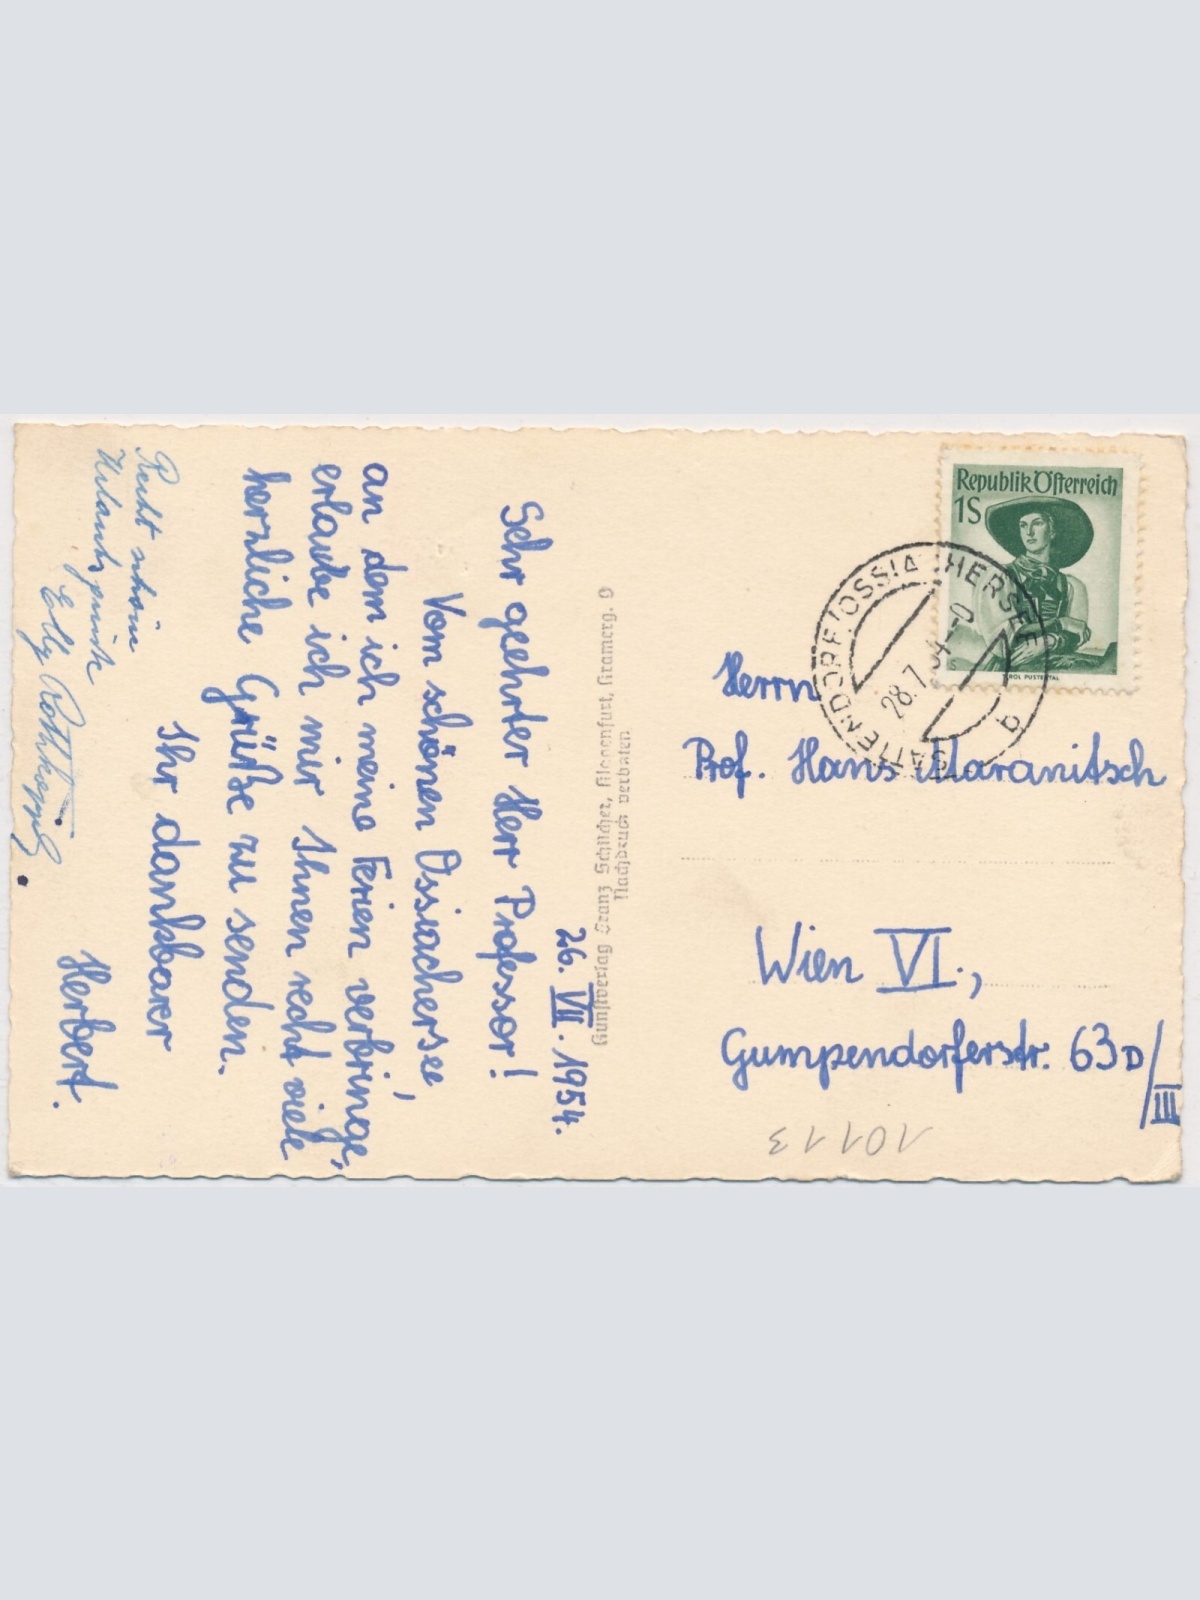 26. VII. 1954.
Sehr geehrter Herr Professor!
Vom schönen Ossiachersee,
an dem ich meine Ferien verbringe,
erlaube ich mir Ihnen recht viele
herzliche Grüße zu senden.
Ihr dankbarer
Herbert.
Recht schöne
Elly
Kunstverlag Franz Schilcher, Klagenfurt, Kramerg. 9
Nachdruck verboten.
Republik Österreich
1S
TIROL PUSTERTAL
SATTENDORF/OSSIACHERSEE
28.7.54
b
Herrn
Prof. Hans Maranitsch
Wien VI.,
Gumpendorferstr. 63D/III
10113